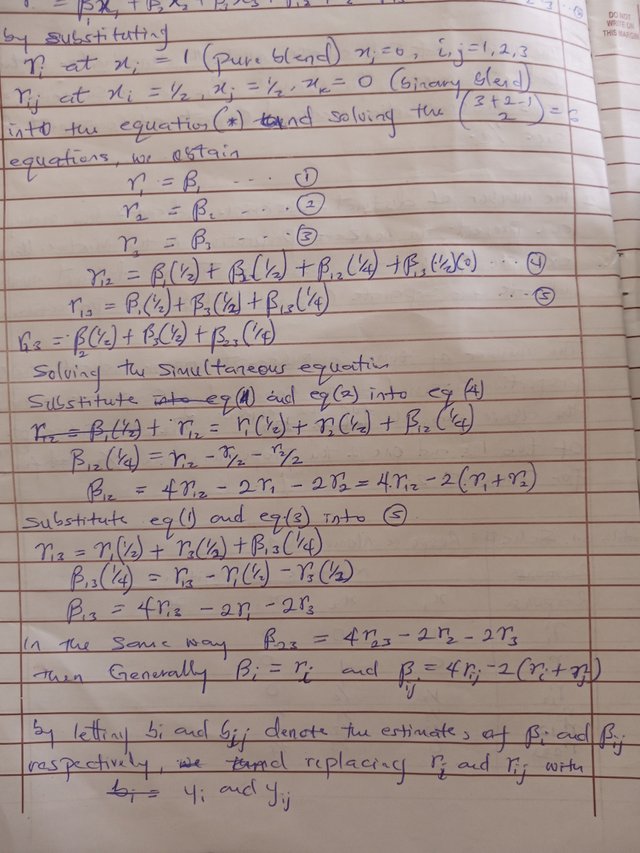 = β₁x₁ + β₂x₂ + β₃x₃ +
DO NOT
WRITE ON
THIS MARGIN
by substituting
rᵢ at xᵢ = 1 (pure blend) xⱼ=0, i,j=1,2,3
rᵢⱼ at xᵢ = ½, xⱼ = ½, xₖ = 0 (binary blend)
into the equation (*) and solving the (3+2-1 2) = 6
equations, we obtain
r₁ = β₁ .... ①
r₂ = β₂ .... ②
r₃ = β₃ .... ③
r₁₂ = β₁(½) + β₂(½) + β₁₂(¼) + β₁₃(½)(0) ... ④
r₁₃ = β₁(½) + β₃(½) + β₁₃(¼) ... ⑤
r₂₃ = β₂(½) + β₃(½) + β₂₃(¼)
Solving the simultaneous equation
Substitute into eq(1) and eq(2) into eq(4)
r₁₂ = β₁(½) + r₁₂ = r₁(½) + r₂(½) + β₁₂(¼)
β₁₂(¼) = r₁₂ - r₁/2 - r₂/2
β₁₂ = 4r₁₂ - 2r₁ - 2r₂ = 4r₁₂ - 2(r₁+r₂)
Substitute eq(1) and eq(3) into ⑤
r₁₃ = r₁(½) + r₃(½) + β₁₃(¼)
β₁₃(¼) = r₁₃ - r₁(½) - r₃(½)
β₁₃ = 4r₁₃ - 2r₁ - 2r₃
In the same way β₂₃ = 4r₂₃ - 2r₂ - 2r₃
then Generally βᵢ = rᵢ and βᵢⱼ = 4rᵢⱼ - 2(rᵢ + rⱼ)
by letting bᵢ and bᵢⱼ denote the estimates of βᵢ and βᵢⱼ
respectively, we and replacing rᵢ and rᵢⱼ with
bᵢ = yᵢ and yᵢⱼ